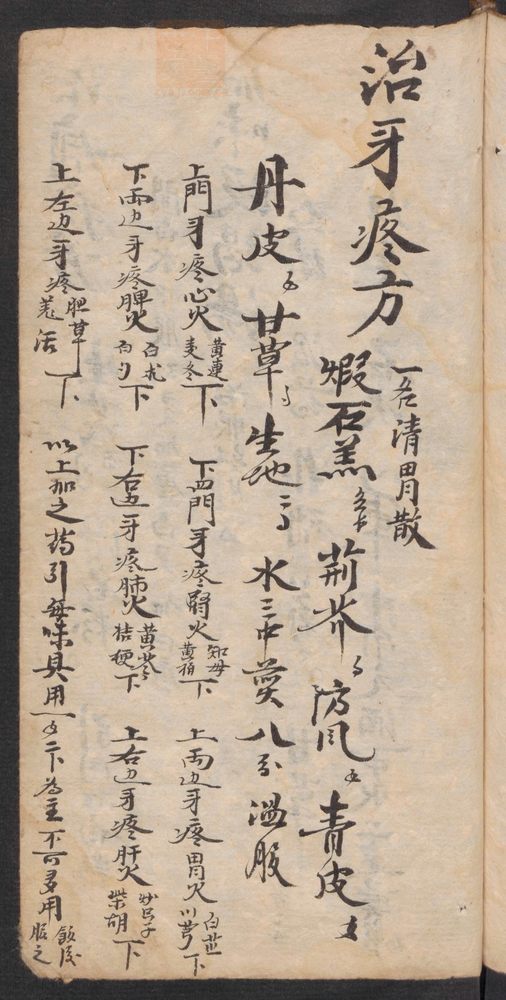 治牙疼方 一名清胃散
煆石羔 荊芥 防风 青皮
丹皮 甘草 生地二 水三中煎八分温服
上門牙疼心火 黄連 麦冬 下 下四門牙疼腎火 知母 黄柏 下 上兩边牙疼胃火 白芷 川芎 下
下兩边牙疼脾火 白朮 白勺 下 下右边牙疼肺火 黄芩 桔梗 下 上右边牙疼肝火 炒只子 柴胡 下
上左边牙疼 胆草 羌活 下 以上加之药引每味具用一 下為主不可多用 飯後服之